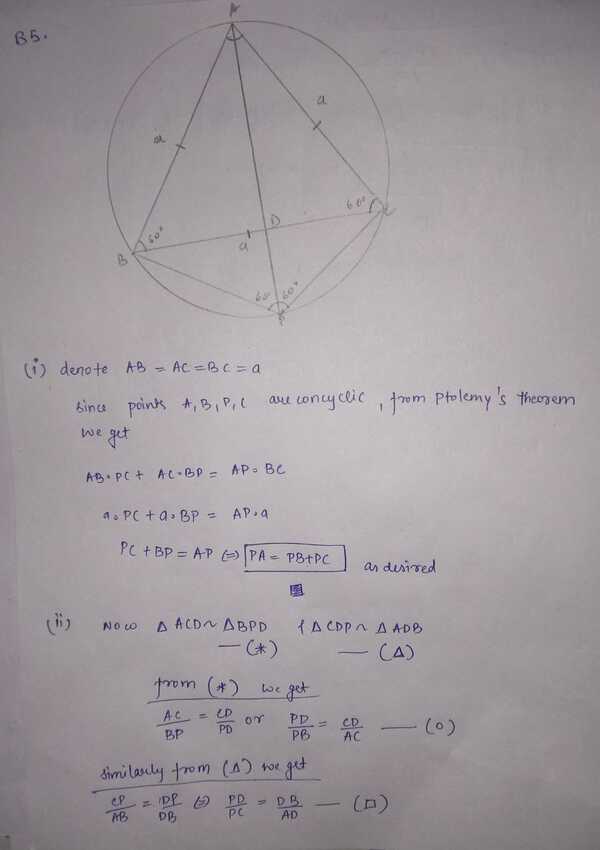 B5.
A
a
a
60°
60°
C
D
B
a
60
60°
P
(i) denote AB = AC = BC = a
Since points A, B, P, C are concyclic, from Ptolemy's theorem
we get
AB∘PC + AC∘BP = AP∘BC
a∘PC + a∘BP = AP∘a
PC + BP = AP ⇔ PA = PB + PC as desired
(ii) Now △ ACD ~ △ BPD & △ CDP ~ △ ADB
— (*) — (△)
from (*) we get
AC/BP = CD/PD or PD/PB = CD/AC — (○)
similarly from (△) we get
CP/AB = DP/DB ⇔ PD/PC = DB/AD — (□)